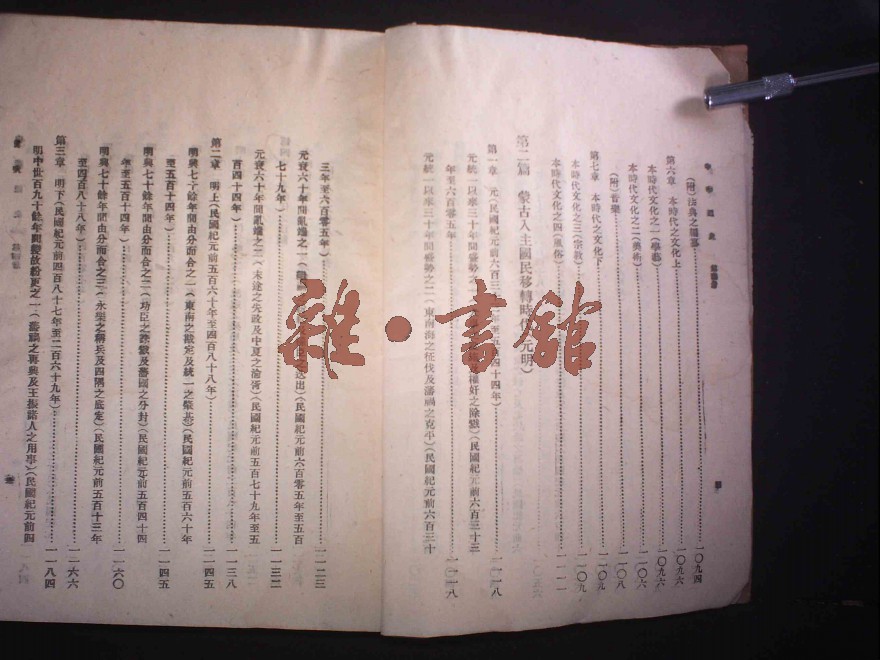 (附)法典之編纂 一〇九四
第六章 本時代之文化上 一〇九六
本時代文化之一(學藝) 一〇九六
本時代文化之二(美術) 一一〇六
(附)音樂 一一〇八
第七章 本時代之文化下 一一〇九
本時代文化之三(宗教) 一一〇九
本時代文化之四(風俗) 一一一一
第二篇 蒙古入主國民移轉時代(元明)
第一章 元(民國紀元前六百三十 年至五百四十四年) 一一一八
元統一以來三十年間盛勢之一( 及權奸之除戮)(民國紀元前六百三十三
年至六百零五年) 一一一八
元統一以來三十年間盛勢之二(東南海之征伐及藩禍之克平)(民國紀元前六百三十
三年至六百零五年) 一一二三
元衰六十年間亂端之一( 之迭出)(民國紀元前六百零五年至五百
七十九年) 一一三二
元衰六十年間亂端之二(末途之失政及中夏之淪胥)(民國紀元前五百七十九年至五
百四十四年) 一一三八
第二章 明上(民國紀元前五百六十年至四百八十八年) 一一四五
明興七十餘年間由分而合之一(東南之勘定及統一之榮基)(民國紀元前五百六十年
至五百十四年) 一一四五
明興七十餘年間由分而合之二(功臣之 獄及藩國之分封)(民國紀元前五百四十四
年至五百十四年) 一一六〇
明興七十餘年間由分而合之三(永樂之稱兵及四隅之底定)(民國紀元前五百十三年
至四百八十八年) 一一六六
第三章 明下(民國紀元前四百八十七年至二百六十九年) 一一八四
明中世百九十餘年間變故紛更之一(藩禍之再興及王振諸人之用事)(民國紀元前四
雜·書館